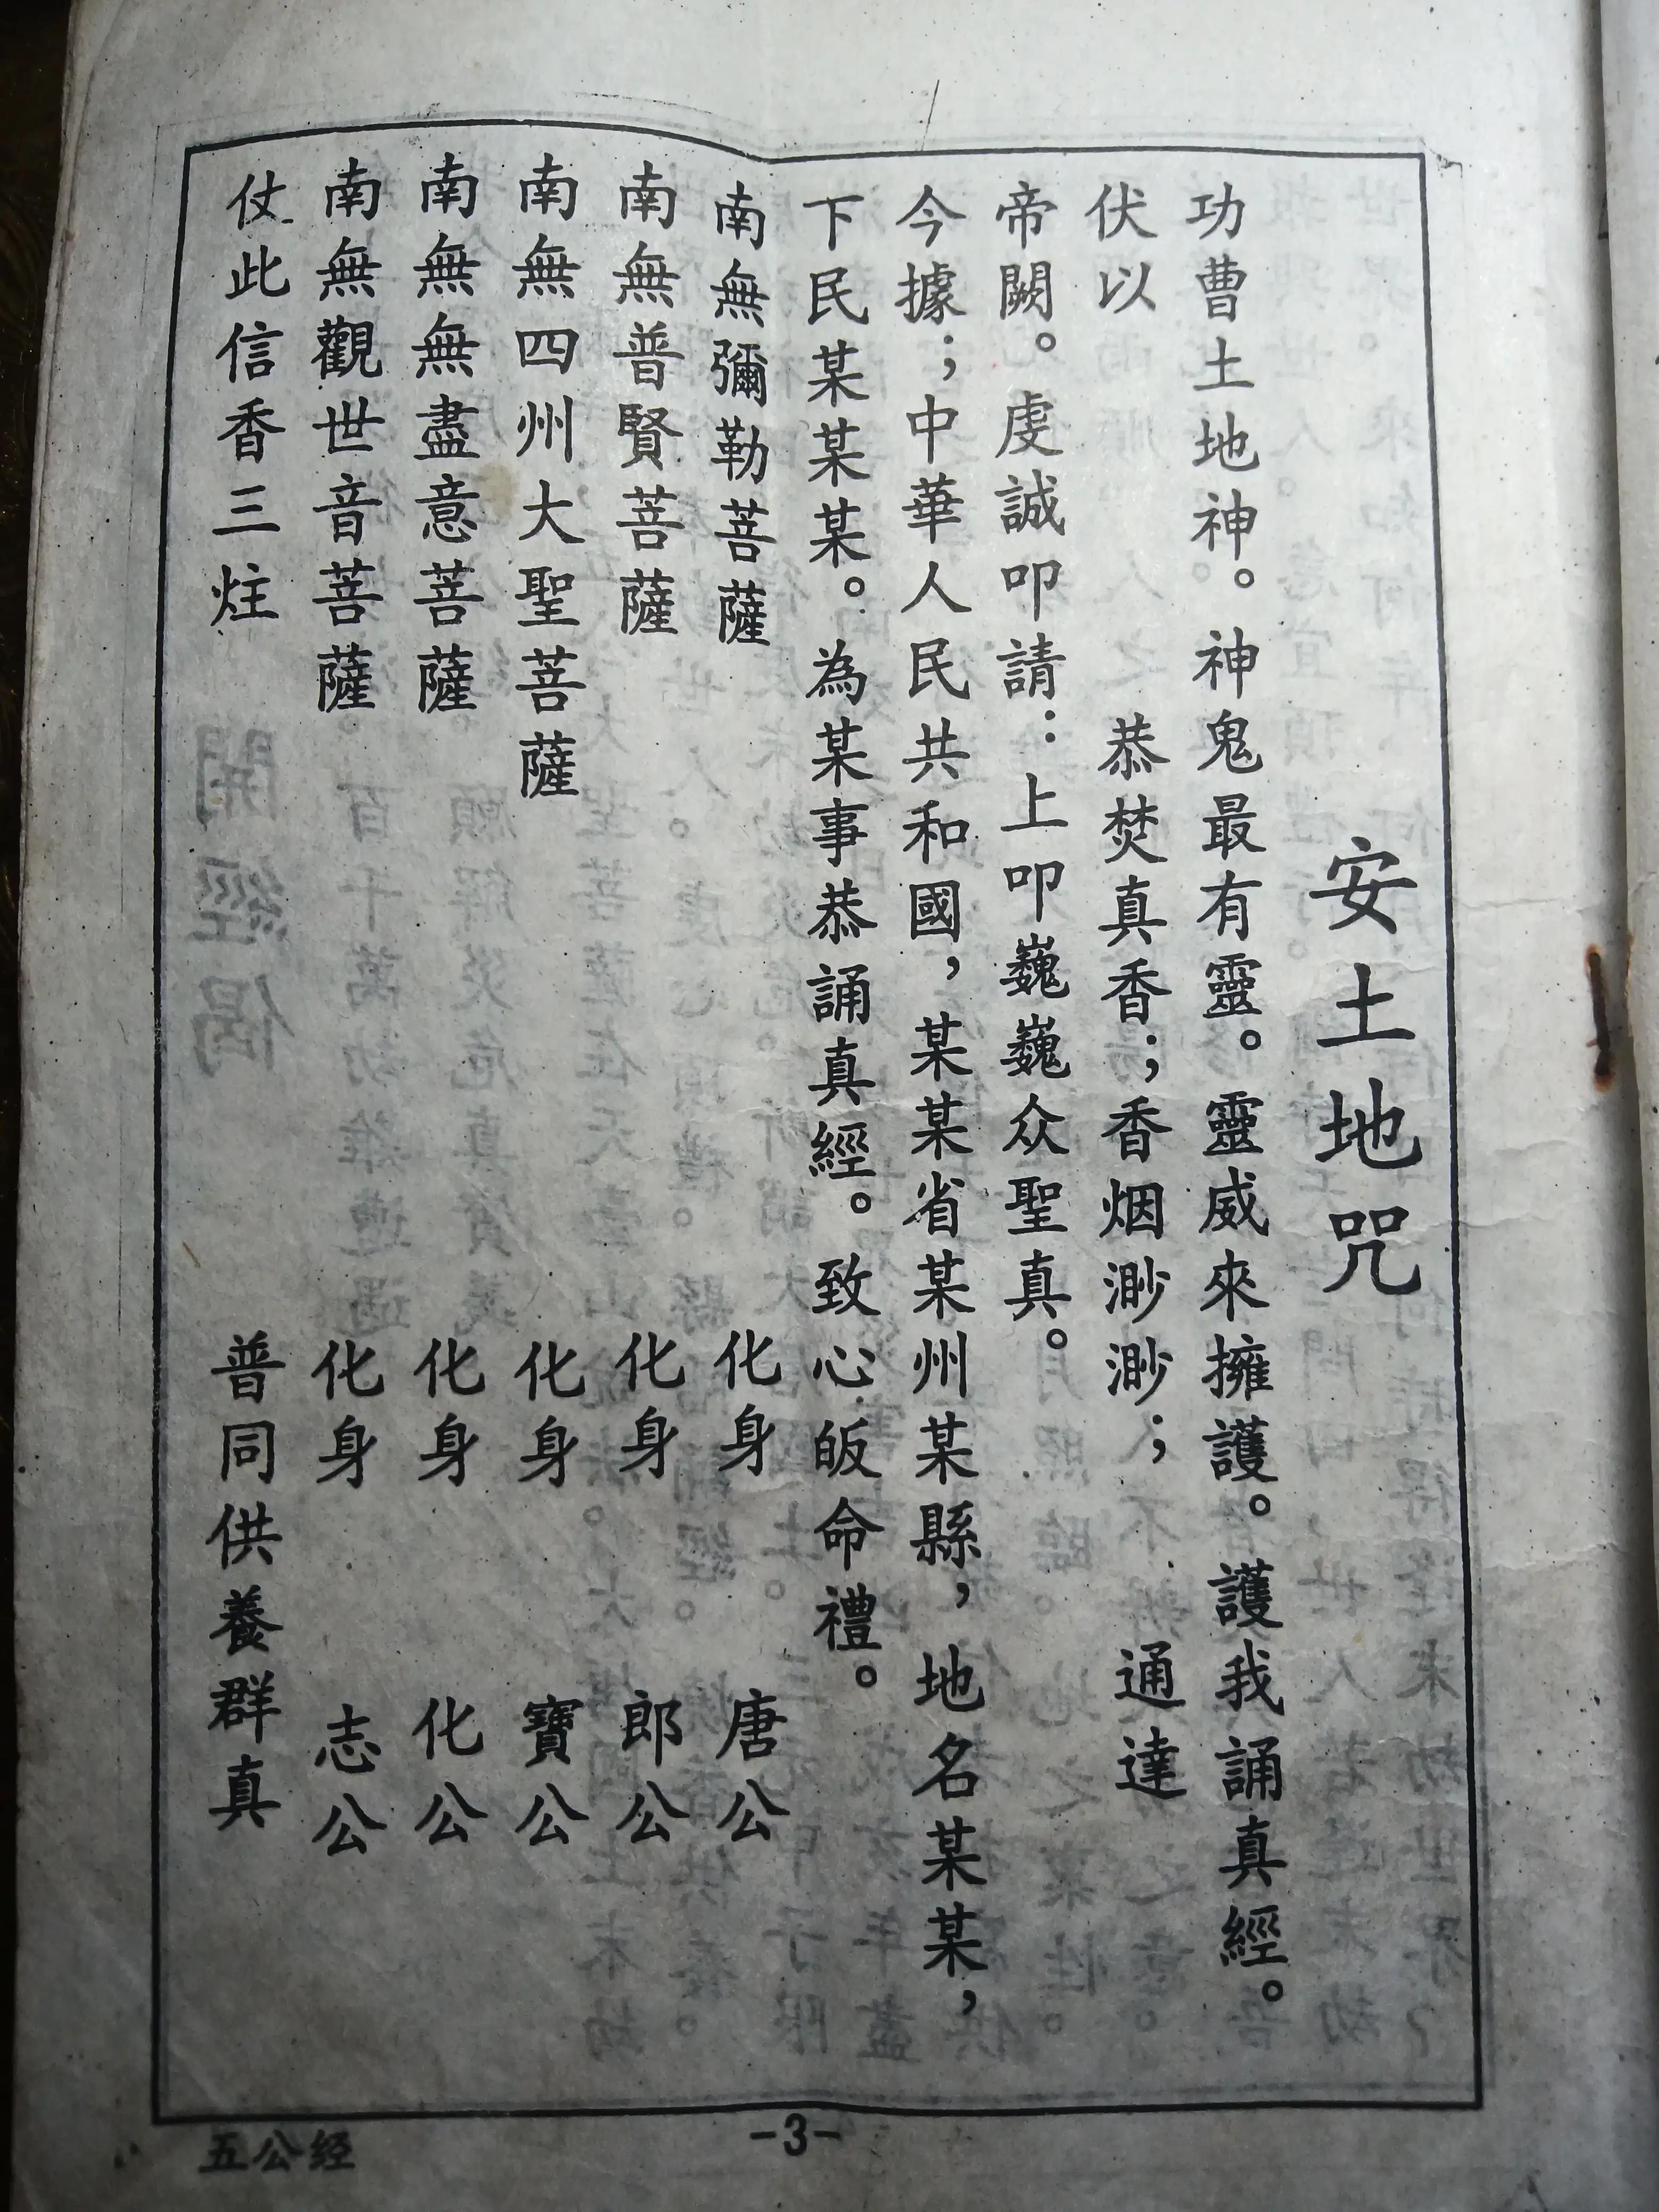 安土地咒
功曹土地神。神鬼最有靈。靈威來擁護。護我誦真經。
伏以 恭焚真香；香烟渺渺； 通達
帝闕。虔誠叩請：上叩巍巍众聖真。
今據；中華人民共和國，某某省某州某縣，地名某某，
下民某某某。為某事恭誦真經。致心皈命禮。
南無彌勒菩薩 化身 唐公
南無普賢菩薩 化身 郎公
南無四州大聖菩薩 化身 寶公
南無無盡意菩薩 化身 化公
南無觀世音菩薩 化身 志公
仗此信香三炷 普同供養群真
-3-
五公经